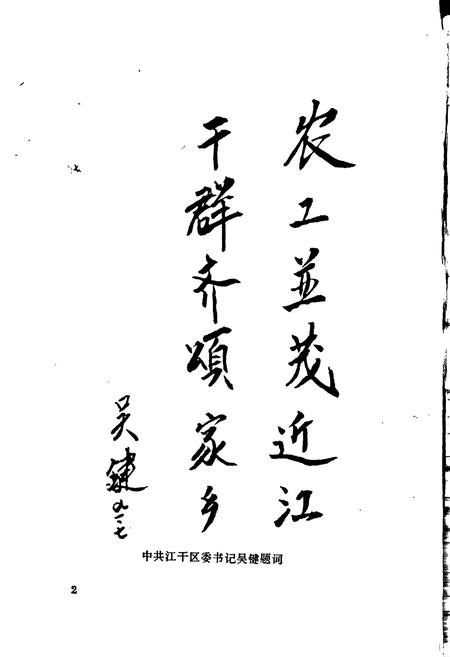 农工並茂近江
干群齐頌家乡
吴键
九一·七
中共江干区委书记吴键题词
2